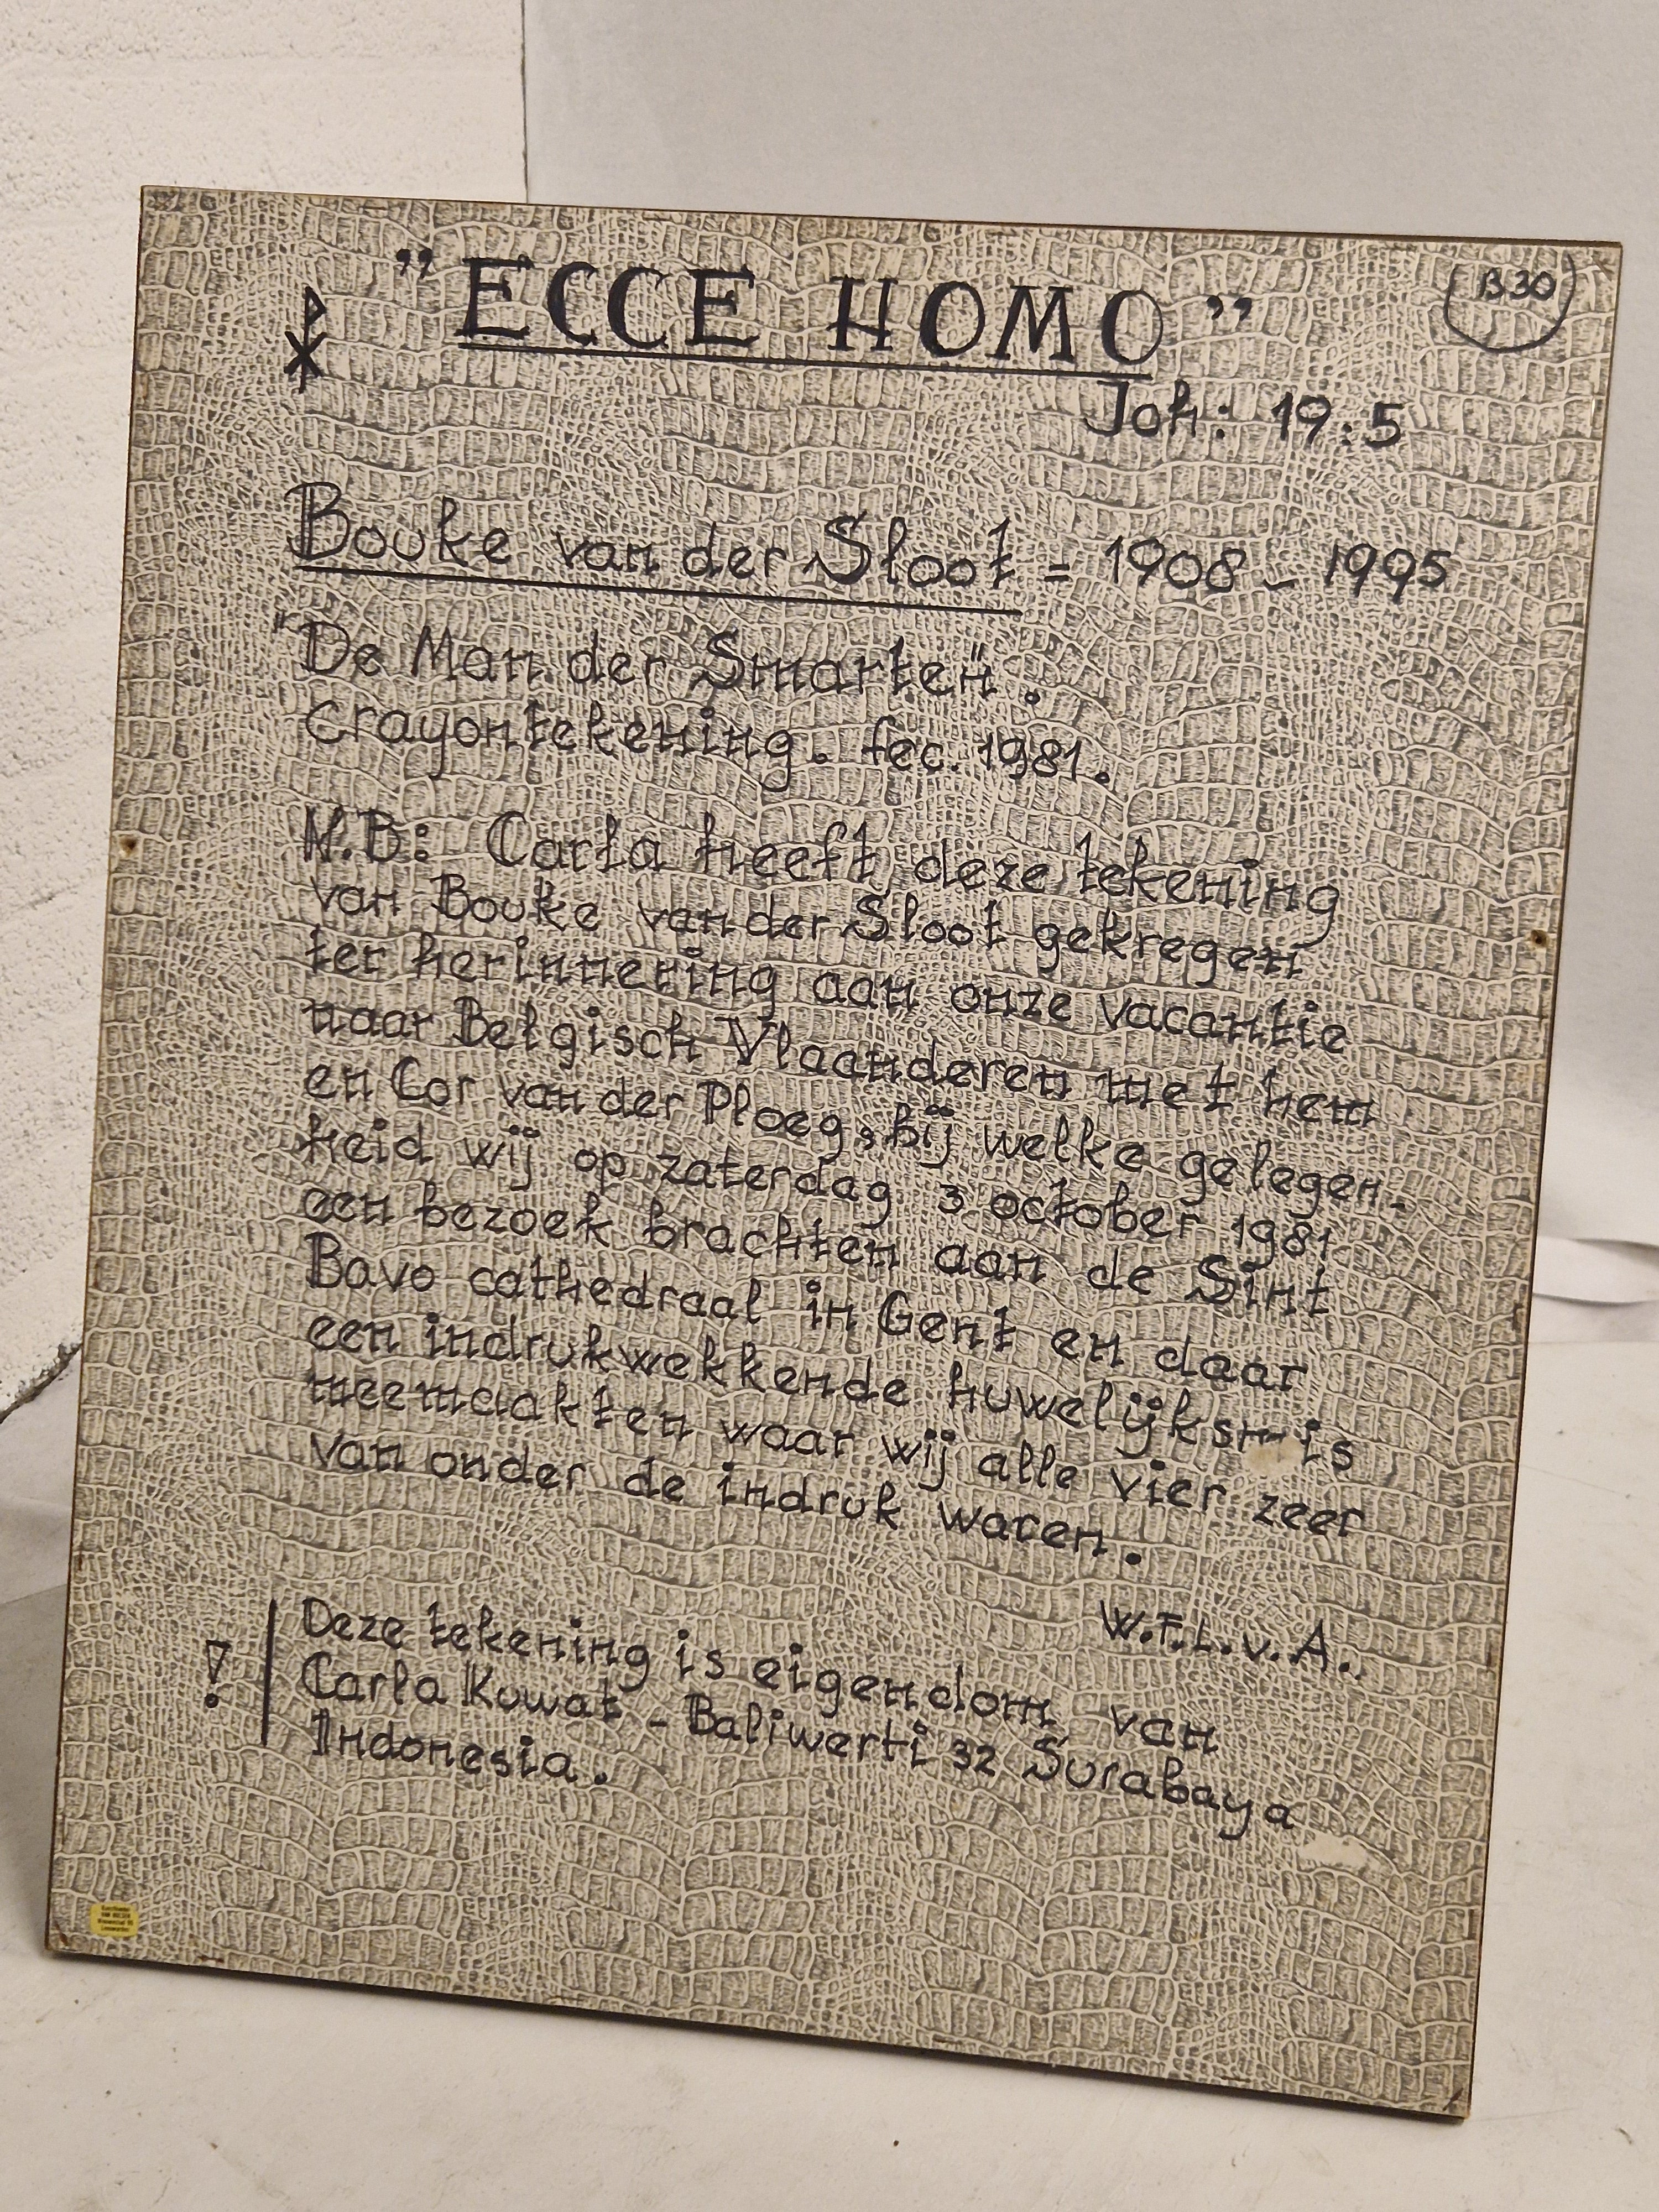 B30
„ECCE HOMO”
Joh: 19:5
Bouke van der Sloot = 1908 - 1995
"De Man der Smarten".
Crayontekening. fec. 1981.
N.B: Carla heeft deze tekening
van Bouke van der Sloot gekregen
ter herinnering aan onze vacantie
naar Belgisch Vlaanderen met hem
en Cor van der Ploeg, bij welke gelegen-
heid wij op zaterdag 3 october 1981
een bezoek brachten aan de Sint
Bavo cathedraal in Gent en daar
een indrukwekkende huwelijksmis
meemaakten waar wij alle vier zeer
van onder de indruk waren.
W.F.L.v.A..
! Deze tekening is eigendom van
Carla Kuwat - Baliwerti 32 Surabaya
Indonesia.